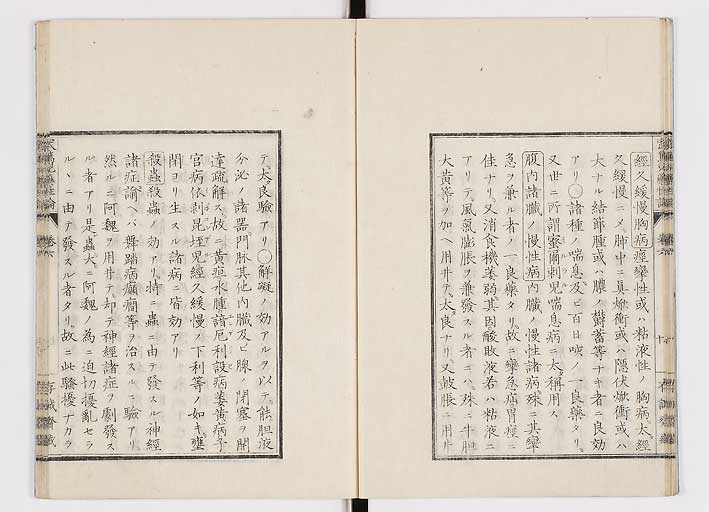 經久緩慢胸病痙攣性或ハ粘液性ノ胸病太經
久緩慢ニメ肺中ニ眞焮衝或ハ隱伏焮衝或ハ
大ナル結節腫或ハ膿ノ欝蓄等ナキ者ニ良効
アリ○諸種ノ喘息及ビ百日咳ノ一良藥タリ
又世ニ所謂蜜爾刺兒喘息病ニ太稱用ス
腹内諸臟ノ慢性病内臟ノ慢性諸病殊ニ其攣
急ヲ兼ル者ノ一良藥タリ故ニ攣急病胃痙ニ
佳ナリ又消食機萎弱其因酸敗液若ハ粘液ニ
アリテ風氣膨脹ヲ兼發スル者ニハ殊ニ牛胆
大黄等ヲ加ヘ用井テ太良ナリ又皷脹ニ用井
テ太良驗アリ○解凝ノ効アルヲ以テ能胆液
分泌ノ諸器門脉其他内臟及ビ腺ノ閉塞ヲ開
達疏解ス故ニ黄疸水腫諳厄利設病萎黄病子
宮病依剥昆垤兒經久緩慢ノ下利等ノ如キ壅
閉ヨリ生スル諸病ニ皆効アリ
殺蟲殺蟲ノ効アリ特ニ蟲ニ由テ發スル神經
諸症諭ヘバ舞踏病癲癇等ヲ治スルニ驗アリ
然ルニ阿魏ヲ用井テ却テ神經諸症ヲ劇發ス
ル者アリ是蟲大ニ阿魏ノ為ニ迫切擾亂セラ
ルヽニ由テ發スル者タリ故ニ此騷擾ナカラ